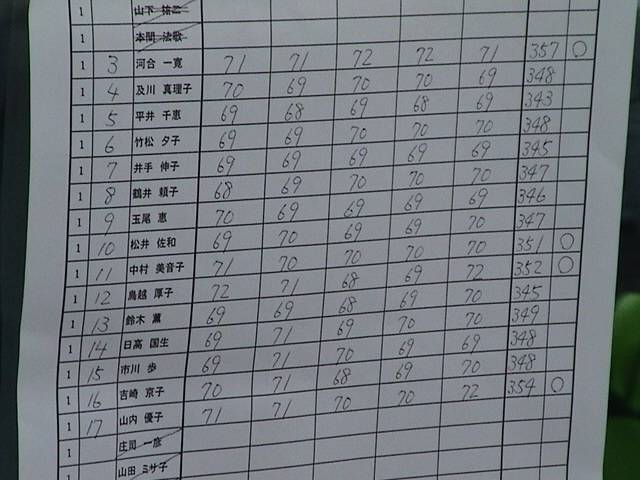 1 山下 祐
1 本間 法歌
1 3 河合 一寛 71 71 72 72 71 357 ○
1 4 及川 真理子 70 69 70 70 69 348
1 5 平井 千恵 69 68 69 68 69 343
1 6 竹松 夕子 69 69 70 70 70 348
1 7 井手 伸子 69 69 69 69 69 345
1 8 鶴井 頼子 68 69 70 70 70 347
1 9 玉尾 恵 70 69 69 69 69 346
1 10 松井 佐和 69 70 69 69 70 347
1 11 中村 美音子 71 70 70 70 70 351 ○
1 12 鳥越 厚子 72 71 68 69 72 352 ○
1 13 鈴木 薫 69 69 68 69 70 345
1 14 日高 国生 69 71 69 70 70 349
1 15 市川 歩 69 71 70 69 69 348
1 16 吉崎 京子 70 71 68 69 70 348
1 17 山内 優子 71 71 70 70 72 354 ○
1 庄司 一彦
1 山田 ミサ子